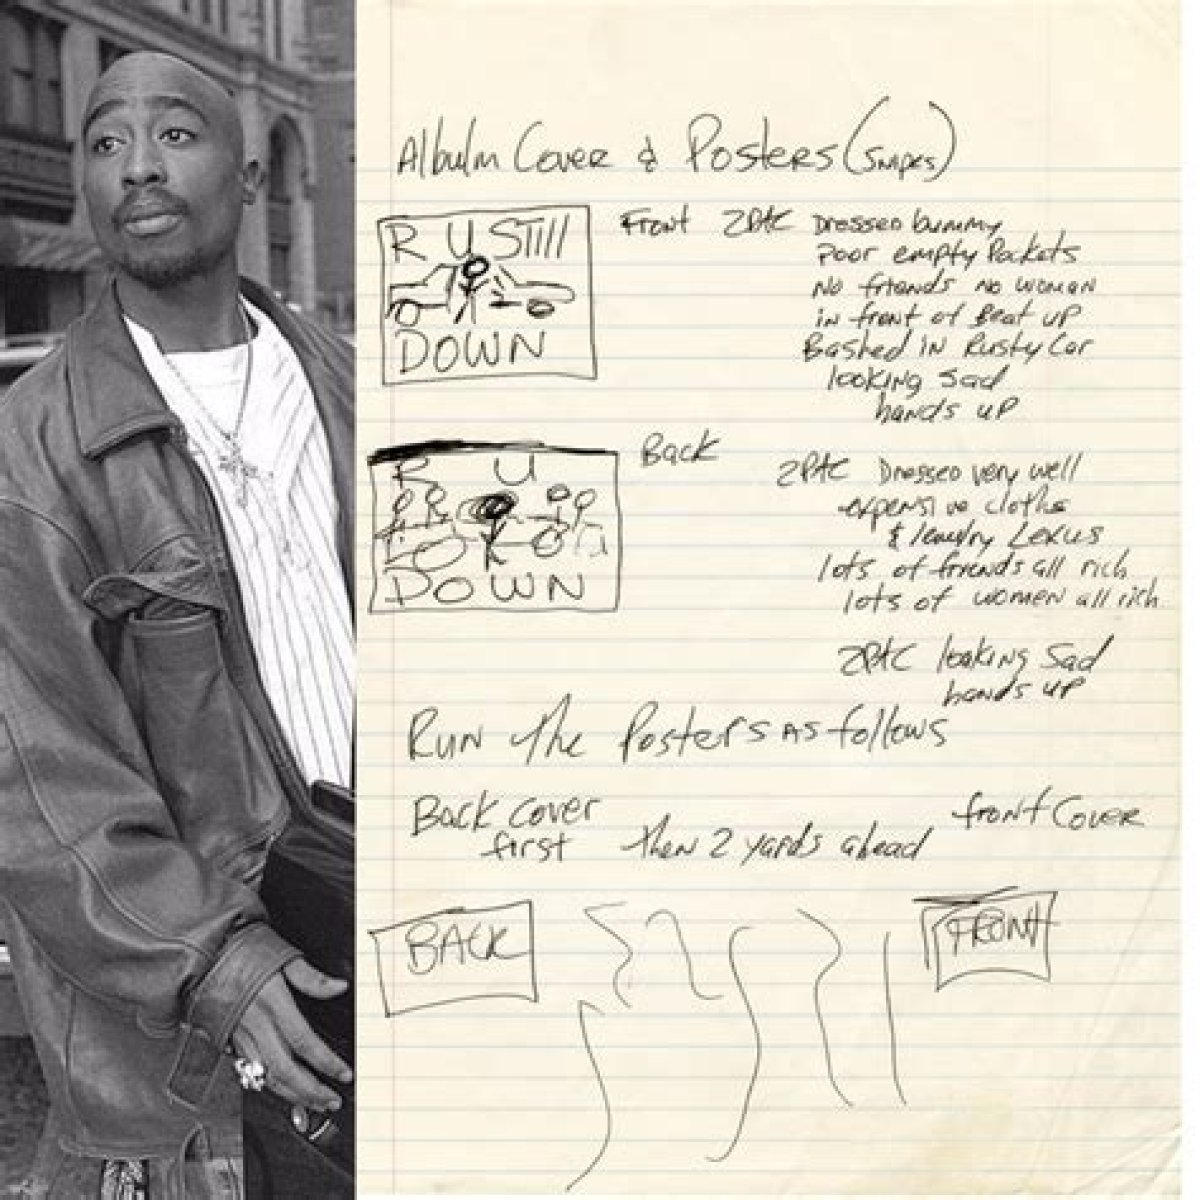 Albulm Cover & Posters (snipes)
R U STill
DOWN
Front 2PAC Dressed bummy
poor empty Pockets
No friends no women
in front of Beat up
Bashed in Rusty Car
looking sad
hands up
Back
R U
DOWN
2PAC Dressed very well
expensive clothes
& jewelry Lexus
lots of friends all rich
lots of women all rich
2PAC looking Sad
hands up
Run the Posters as follows
Back cover
first then 2 yards ahead front Cover
BACK
FRONT